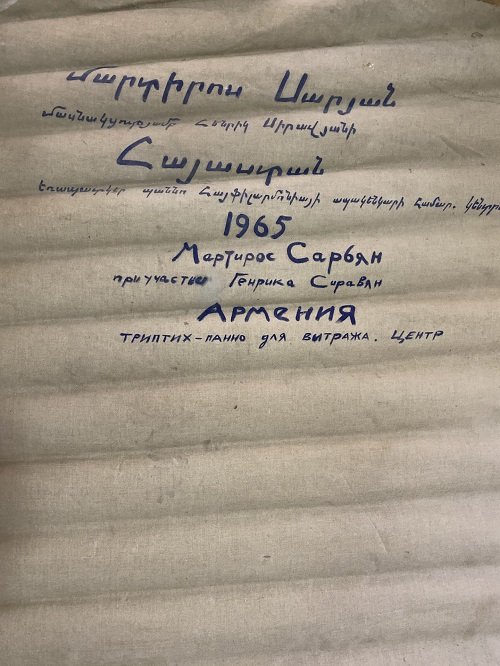 Մարտիրոս Սարյան
մասնակցությամբ Հենրիկ Սիրավյանի
Հայաստան
Եռապատկեր պաննո Հայֆիլհարմոնիայի ապակենկարի համար. կենտրոն
1965
Мартирос Сарьян
при участии Генрика Сиравян
Армения
триптих-панно для витража. Центр